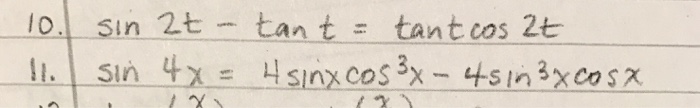 10. sin 2t - tan t = tant cos 2t
11. sin 4x = 4 sinx cos³x - 4sin³x cosx